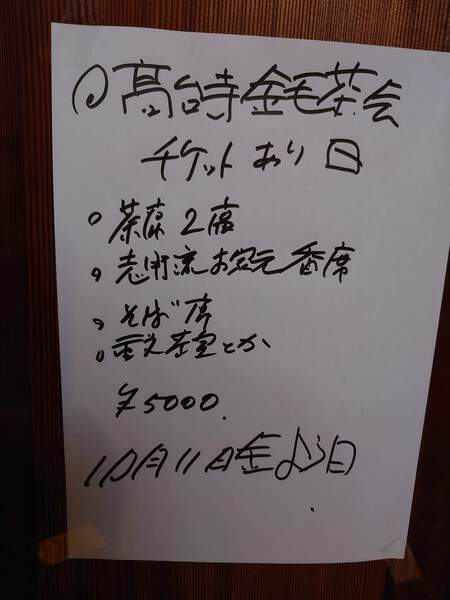 ○高台寺金毛茶会
チケットあり
○茶席2席
○志野流お家元香席
○そば席
○茶室とか
¥5000.
10月11日金よう日